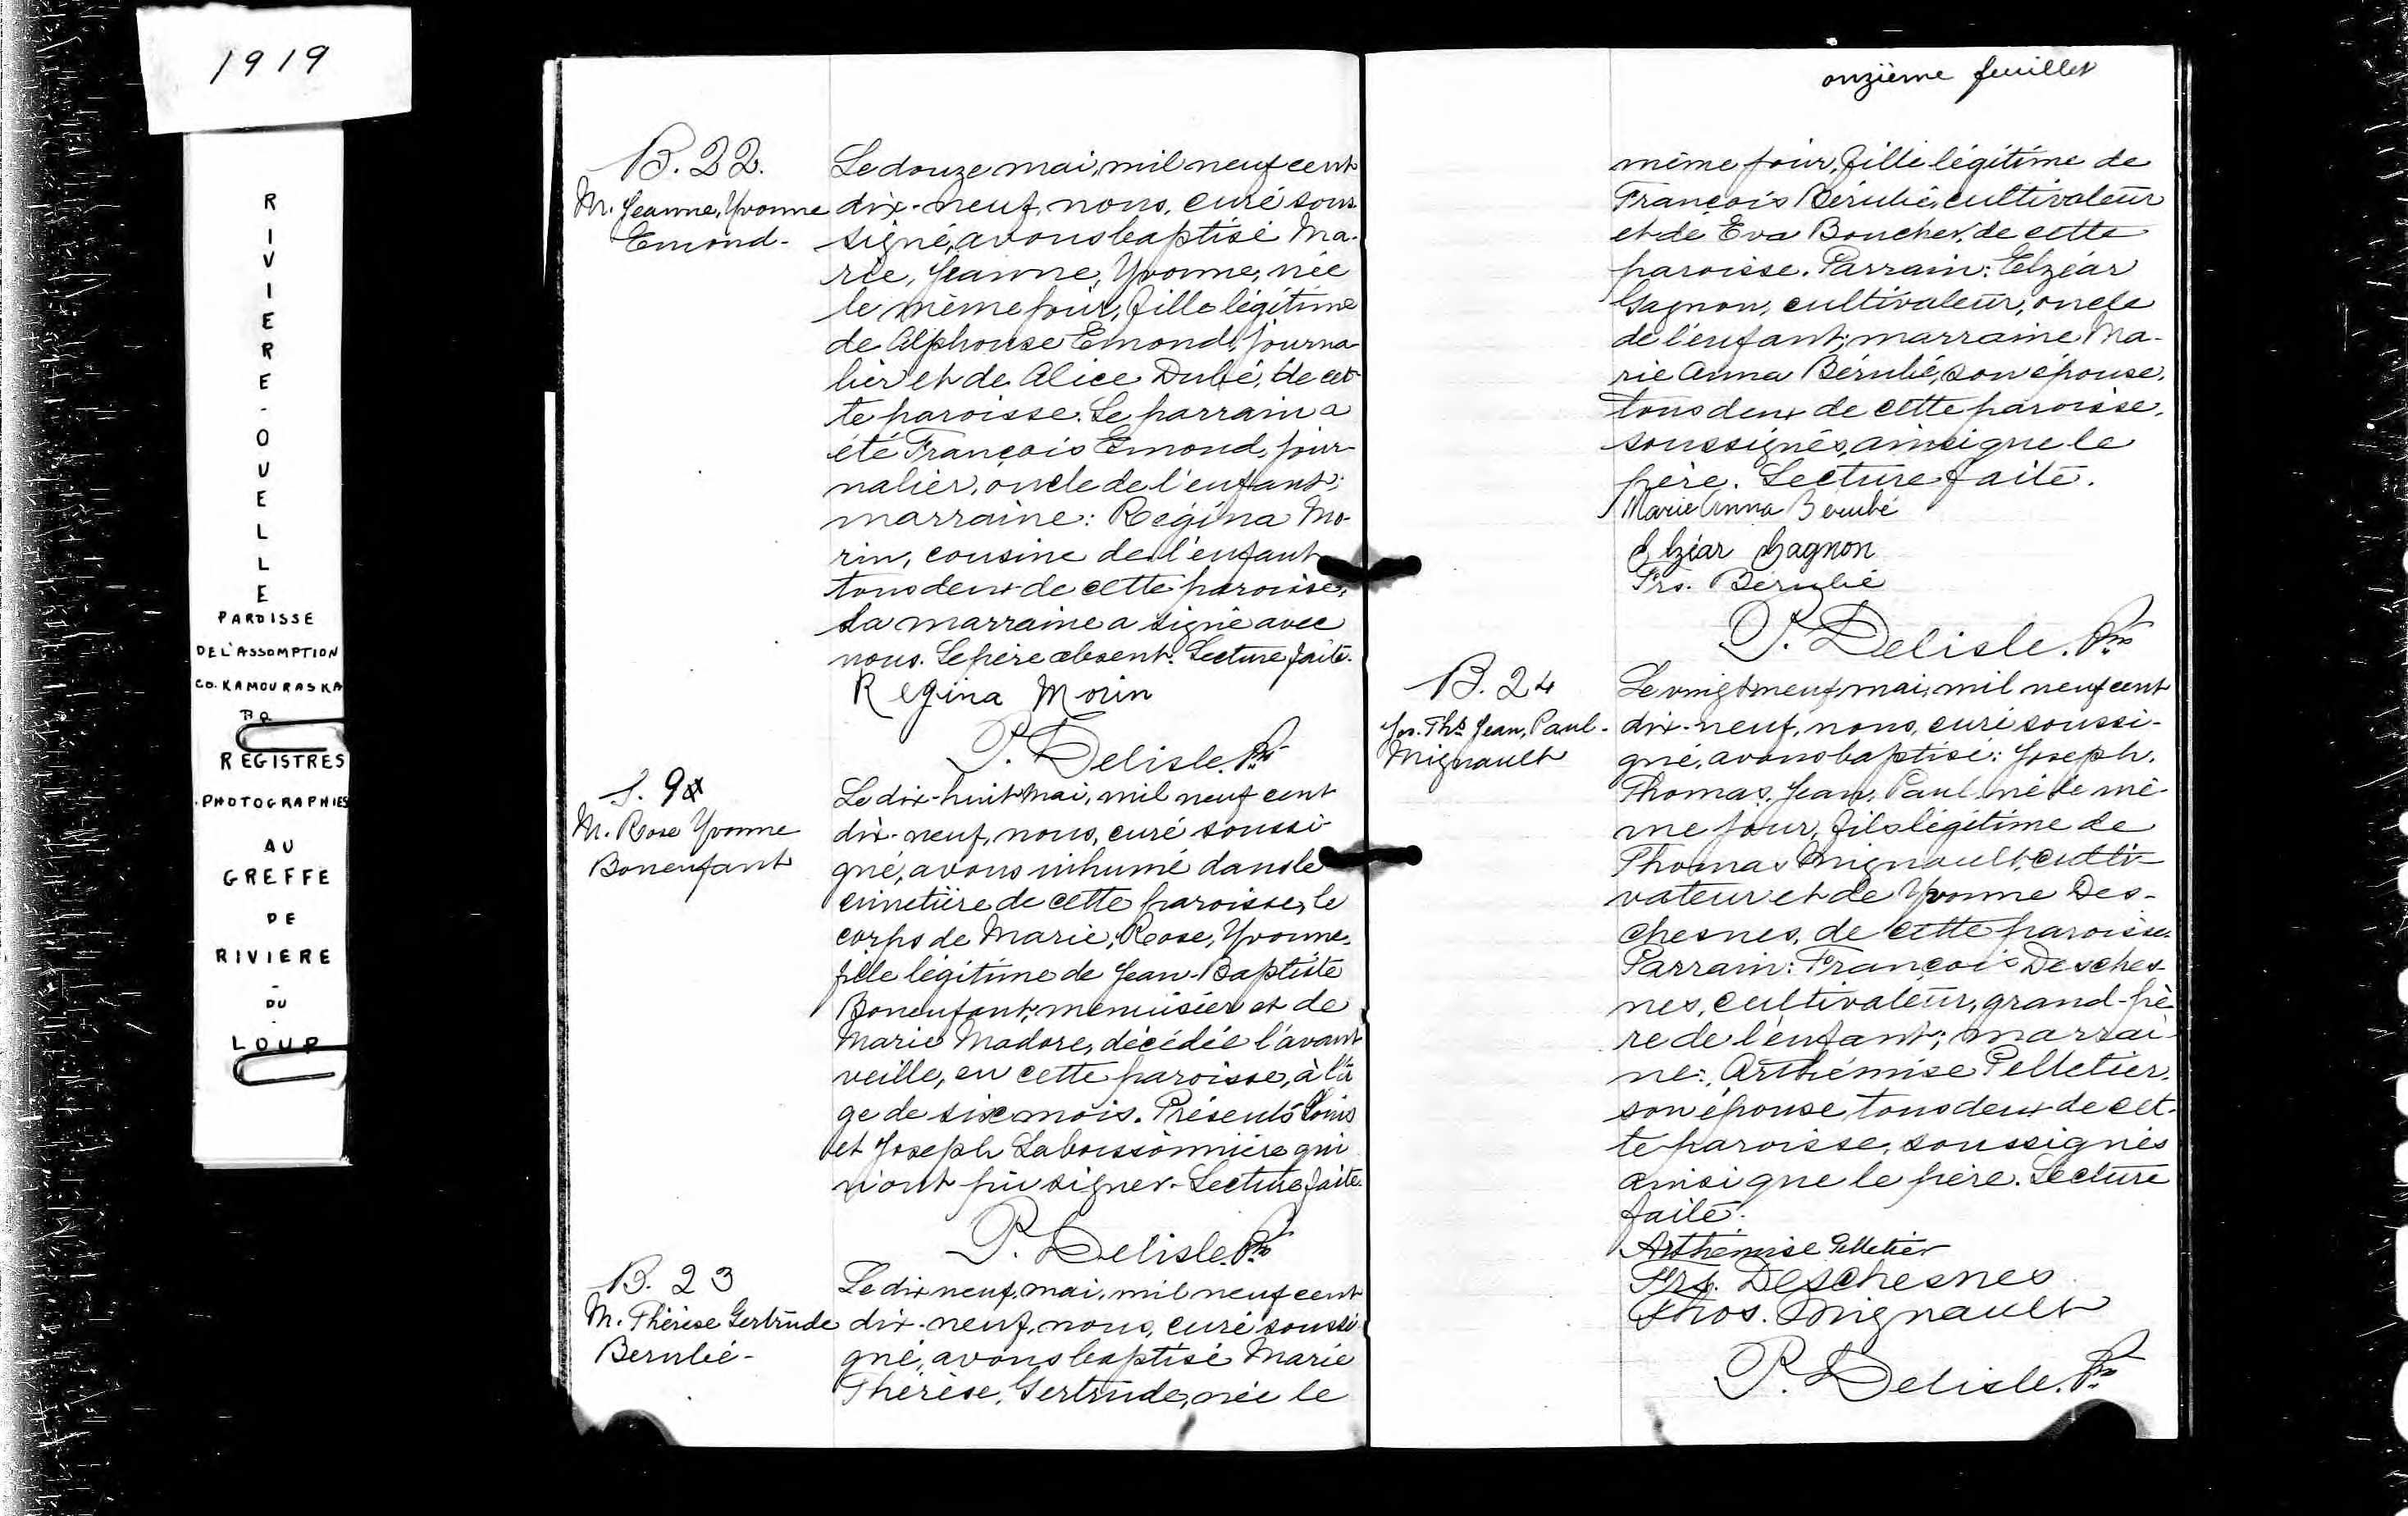 1919
RIVIERE-OUELLE
PAROISSE
DE L'ASSOMPTION
CO. KAMOURASKA
P.Q.
REGISTRES
PHOTOGRAPHIES
AU
GREFFE
DE
RIVIERE
-
DU
-
LOUP
B. 22.
M. Jeanne, Yvonne
Emond-
Le douze mai, mil neuf cent
dix-neuf, nous, curé sous
signé, avons baptisé Ma-
rie, Jeanne, Yvonne, née
le même jour, fille légitime
de Alphonse Emond, journa-
lier et de Alice Dubé, de cet-
te paroisse. Le parrain a
été François Emond, jour-
nalier, oncle de l'enfant;
marraine: Régina Mo-
rin, cousine de l'enfant
tous deux de cette paroisse,
La marraine a signé avec
nous. Le père absent. Lecture faite.
Régina Morin
P. Delisle, Ptre
S. 9
M. Rose Yvonne
Bonenfant
Le dix-huit mai, mil neuf cent
dix-neuf, nous, curé soussi-
gné, avons inhumé dans le
cimetière de cette paroisse, le
corps de Marie, Rose, Yvonne,
fille légitime de Jean-Baptiste
Bonenfant, menuisier et de
Marie Madore, décédée l'avant
veille, en cette paroisse, à l'â-
ge de six mois. Présents Louis
et Joseph Laboissonnière qui
n'ont pu signer. Lecture faite.
P. Delisle, Ptre
B. 23
M. Thérèse Gertrude
Berubé-
Le dix neuf, mai, mil neuf cent
dix-neuf, nous, curé soussi
gné, avons baptisé Marie
Thérèse, Gertrude, née le
onzième feuillet
même jour, fille légitime de
François Bérubé, cultivateur
et de Eva Boucher, de cette
paroisse. Parrain: Elzéar
Gagnon, cultivateur, oncle
de l'enfant; marraine Ma-
rie Anna Bérubé, son épouse,
tous deux de cette paroisse,
soussignés, ainsi que le
père. Lecture faite.
Marie Anna Bérubé
Elzéar Gagnon
Frs. Bérubé
P. Delisle, Ptre
B. 24
Jos. Ths Jean, Paul-
Mignault
Le vingt neuf, mai, mil neuf cent
dix-neuf, nous, curé soussi-
gné, avons baptisé: Joseph,
Thomas, Jean, Paul né le mê-
me jour, fils légitime de
Thomas Mignault, culti-
vateur et de Yvonne Des-
chesnes, de cette paroisse.
Parrain: François Desches-
nes, cultivateur, grand-pè-
re de l'enfant; marrai-
ne: Arthémise Pelletier,
son épouse, tous deux de cet-
te paroisse, soussignés
ainsi que le père. Lecture
faite.
Arthémise Pelletier
Frs. Deschesnes
Thos. Mignault
P. Delisle, Ptre